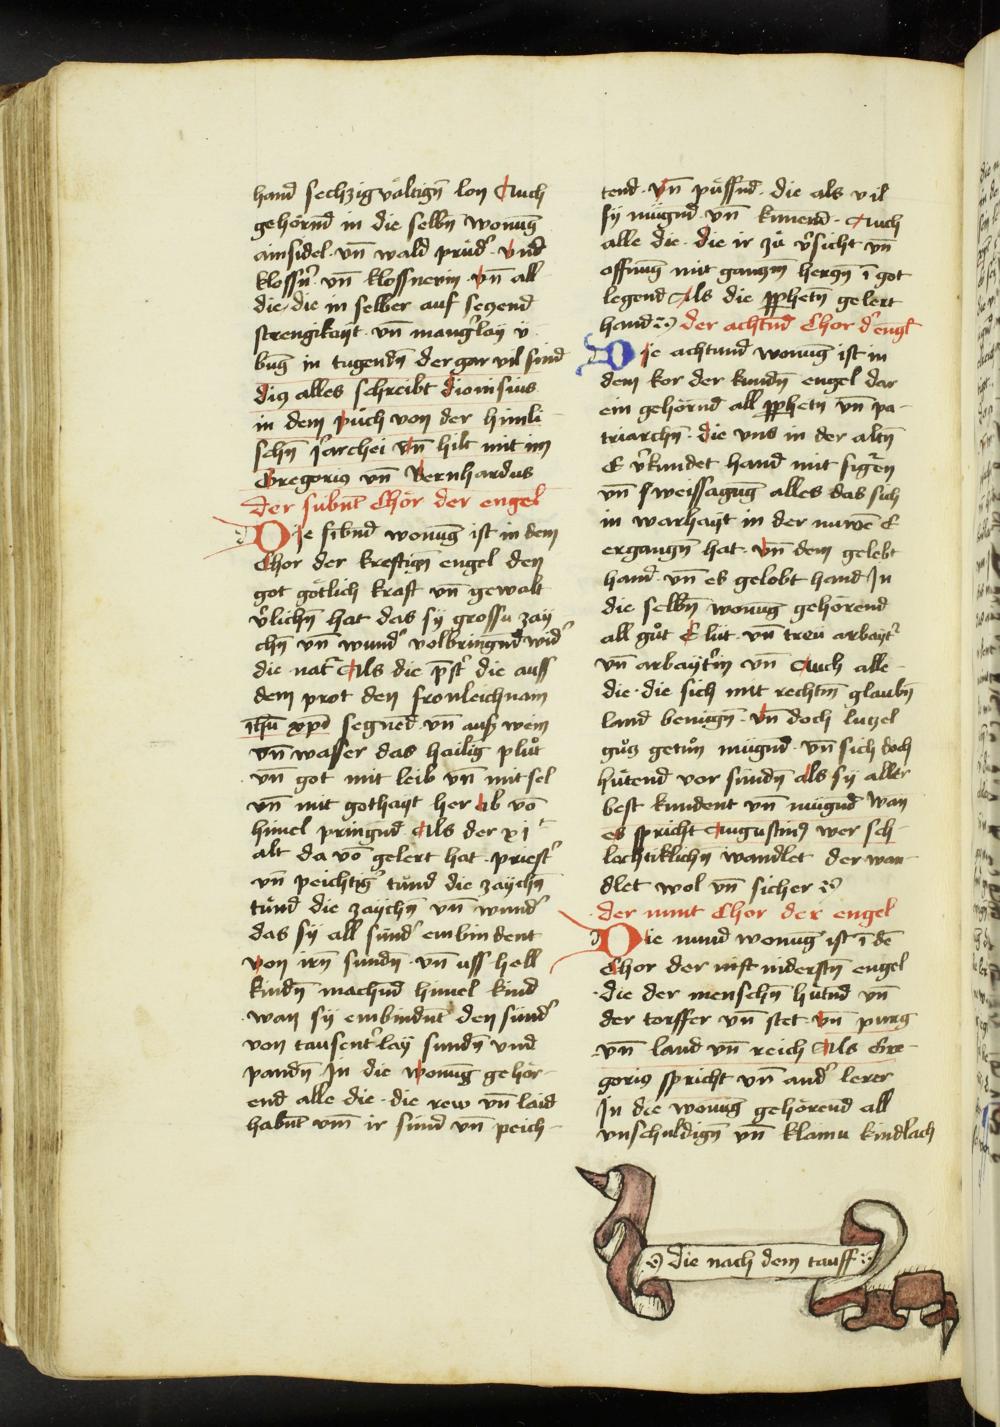 hand sechzigvältign̄ lon Auch
gehörnd in die selbn̄ wonūg
ainsidel · vn̄ wald prüd' · vnd
klossn̄' · vn̄ klossnerin · vn̄ all
die · die in selber auf seczend
strengikayt · vn̄ mang'lay ü
būg in tugendn̄ der gar vil sind
dis alles schreibt dionisius
in dem püch von der himli
schn̄ iararchei vn̄ hilt mit im
Gregorius vn̄ Bernhardus
der sübnt Chör der engel
Die sibnd wonūg ist in dem
Chor der kreftign̄ engel den
got götlich kraft vn̄ gewalt
v'lichn̄ hat das sy grossu zay
chn̄ vn̄ wund' volbringnd wid'
die nat' Als die p̄st' die auss
dem prot den fronleichnam
ih̄u xp̄i segned · vn̄ auß wein
vn̄ wasser das hailig plůt
vn̄ got mit leib vn̄ mit sel
vn̄ mit gothayt her ab vō
himel pringnd Als der xi
alt da vō gelert hat · priest'
vn̄ peichtig' tůnd die zaychn̄
tůnd die zaychn̄ vn̄ wund'
das sy all sünd' embindent
von irn̄ sundn̄ · vn̄ uss hell
kindn̄ machnd himel kind
wan sy embindnt den sünd'
von tausent'lay sundn̄ vnd
pandn̄ · In die wonūg gehör
end alle die · die rew vn̄ laid
habnt vm̄ ir sünd vn̄ peich
tend · vn̄ püssnd · die als vil
sy mügnd · vn̄ kunend · Auch
alle die · die ir zů v'sicht vn̄
offnūg mit ganczm herczn̄ ī got
legend Als die pphetn̄ gelert
hand der achtnd Chor d' engl
Die achtund wonūg ist in
dem kor der kundn̄ engel dar
ein gehörnd all pphetn̄ vn̄ pa
triarchn̄ · die vns in der altn̄
E v'kundet hand mit figurn̄
vn̄ weissagūg alles das sich
in warhayt in der nuwē E
ergangn̄ hat · vn̄ dem gelebt
hand · vn̄ es gelobt hand In
die selbn̄ wonūg gehörend
all gůt E lüt · vn̄ treü arbayt'
vn̄ arbayt'in vn̄ Auch alle
die · die sich mit rechtm̄ glaubn̄
land benügn̄ · vn̄ doch luczel
gůcz getůn mügnd · vn̄ sich doch
hütend vor sündn̄ als sy aller
best kundent vn̄ mügnd wan
es spricht Augustin' wer sch
lechtiklichn̄ wandlet der wan
dlet wol vn̄ sicher
der nünt Chor der engel
Die nünd wonūg ist ī dē
Chor der nist nidersten engel
die der menschn̄ hütnd vn̄
der torffer vn̄ stet · vn̄ purg
vn̄ land vn̄ reich Als Gre
gorius spricht vn̄ and' lerer
In die wonūg gehörend all
vnschuldign̄ vn̄ klainu kindlach
die nach dem tauff